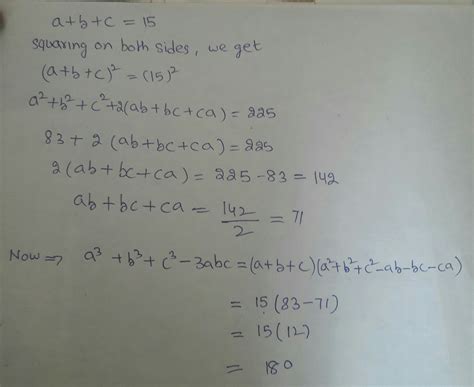 a+b+c = 15
squaring on both sides, we get
(a+b+c)² = (15)²
a²+b²+c²+2(ab+bc+ca) = 225
83 + 2 (ab+bc+ca) = 225
2(ab+bc+ca) = 225 - 83 = 142
ab+bc+ca = 142/2 = 71
Now ⇒ a³ + b³ + c³ - 3abc = (a+b+c)(a²+b²+c²-ab-bc-ca)
= 15(83-71)
= 15(12)
= 180